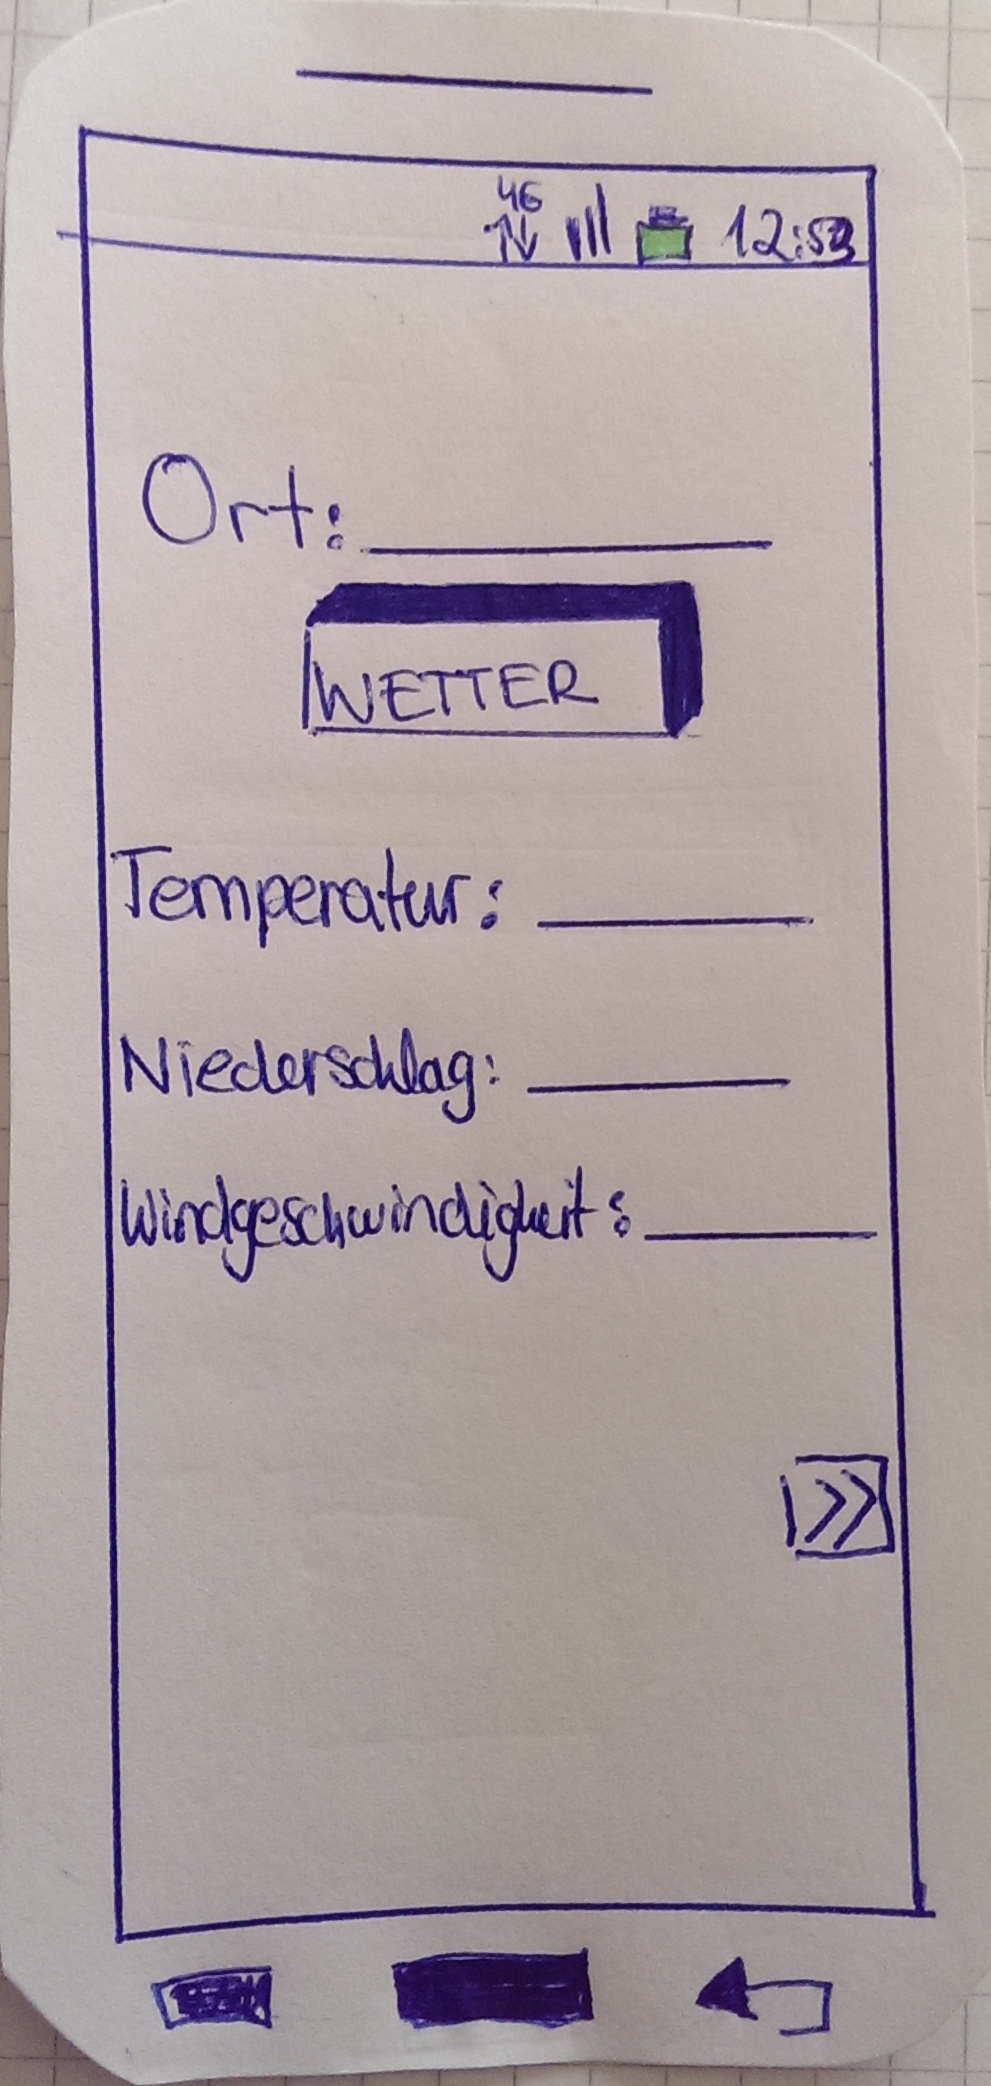 4G
12:53
Ort:
WETTER
Temperatur:
Niederschlag:
Windgeschwindigkeit:
>>